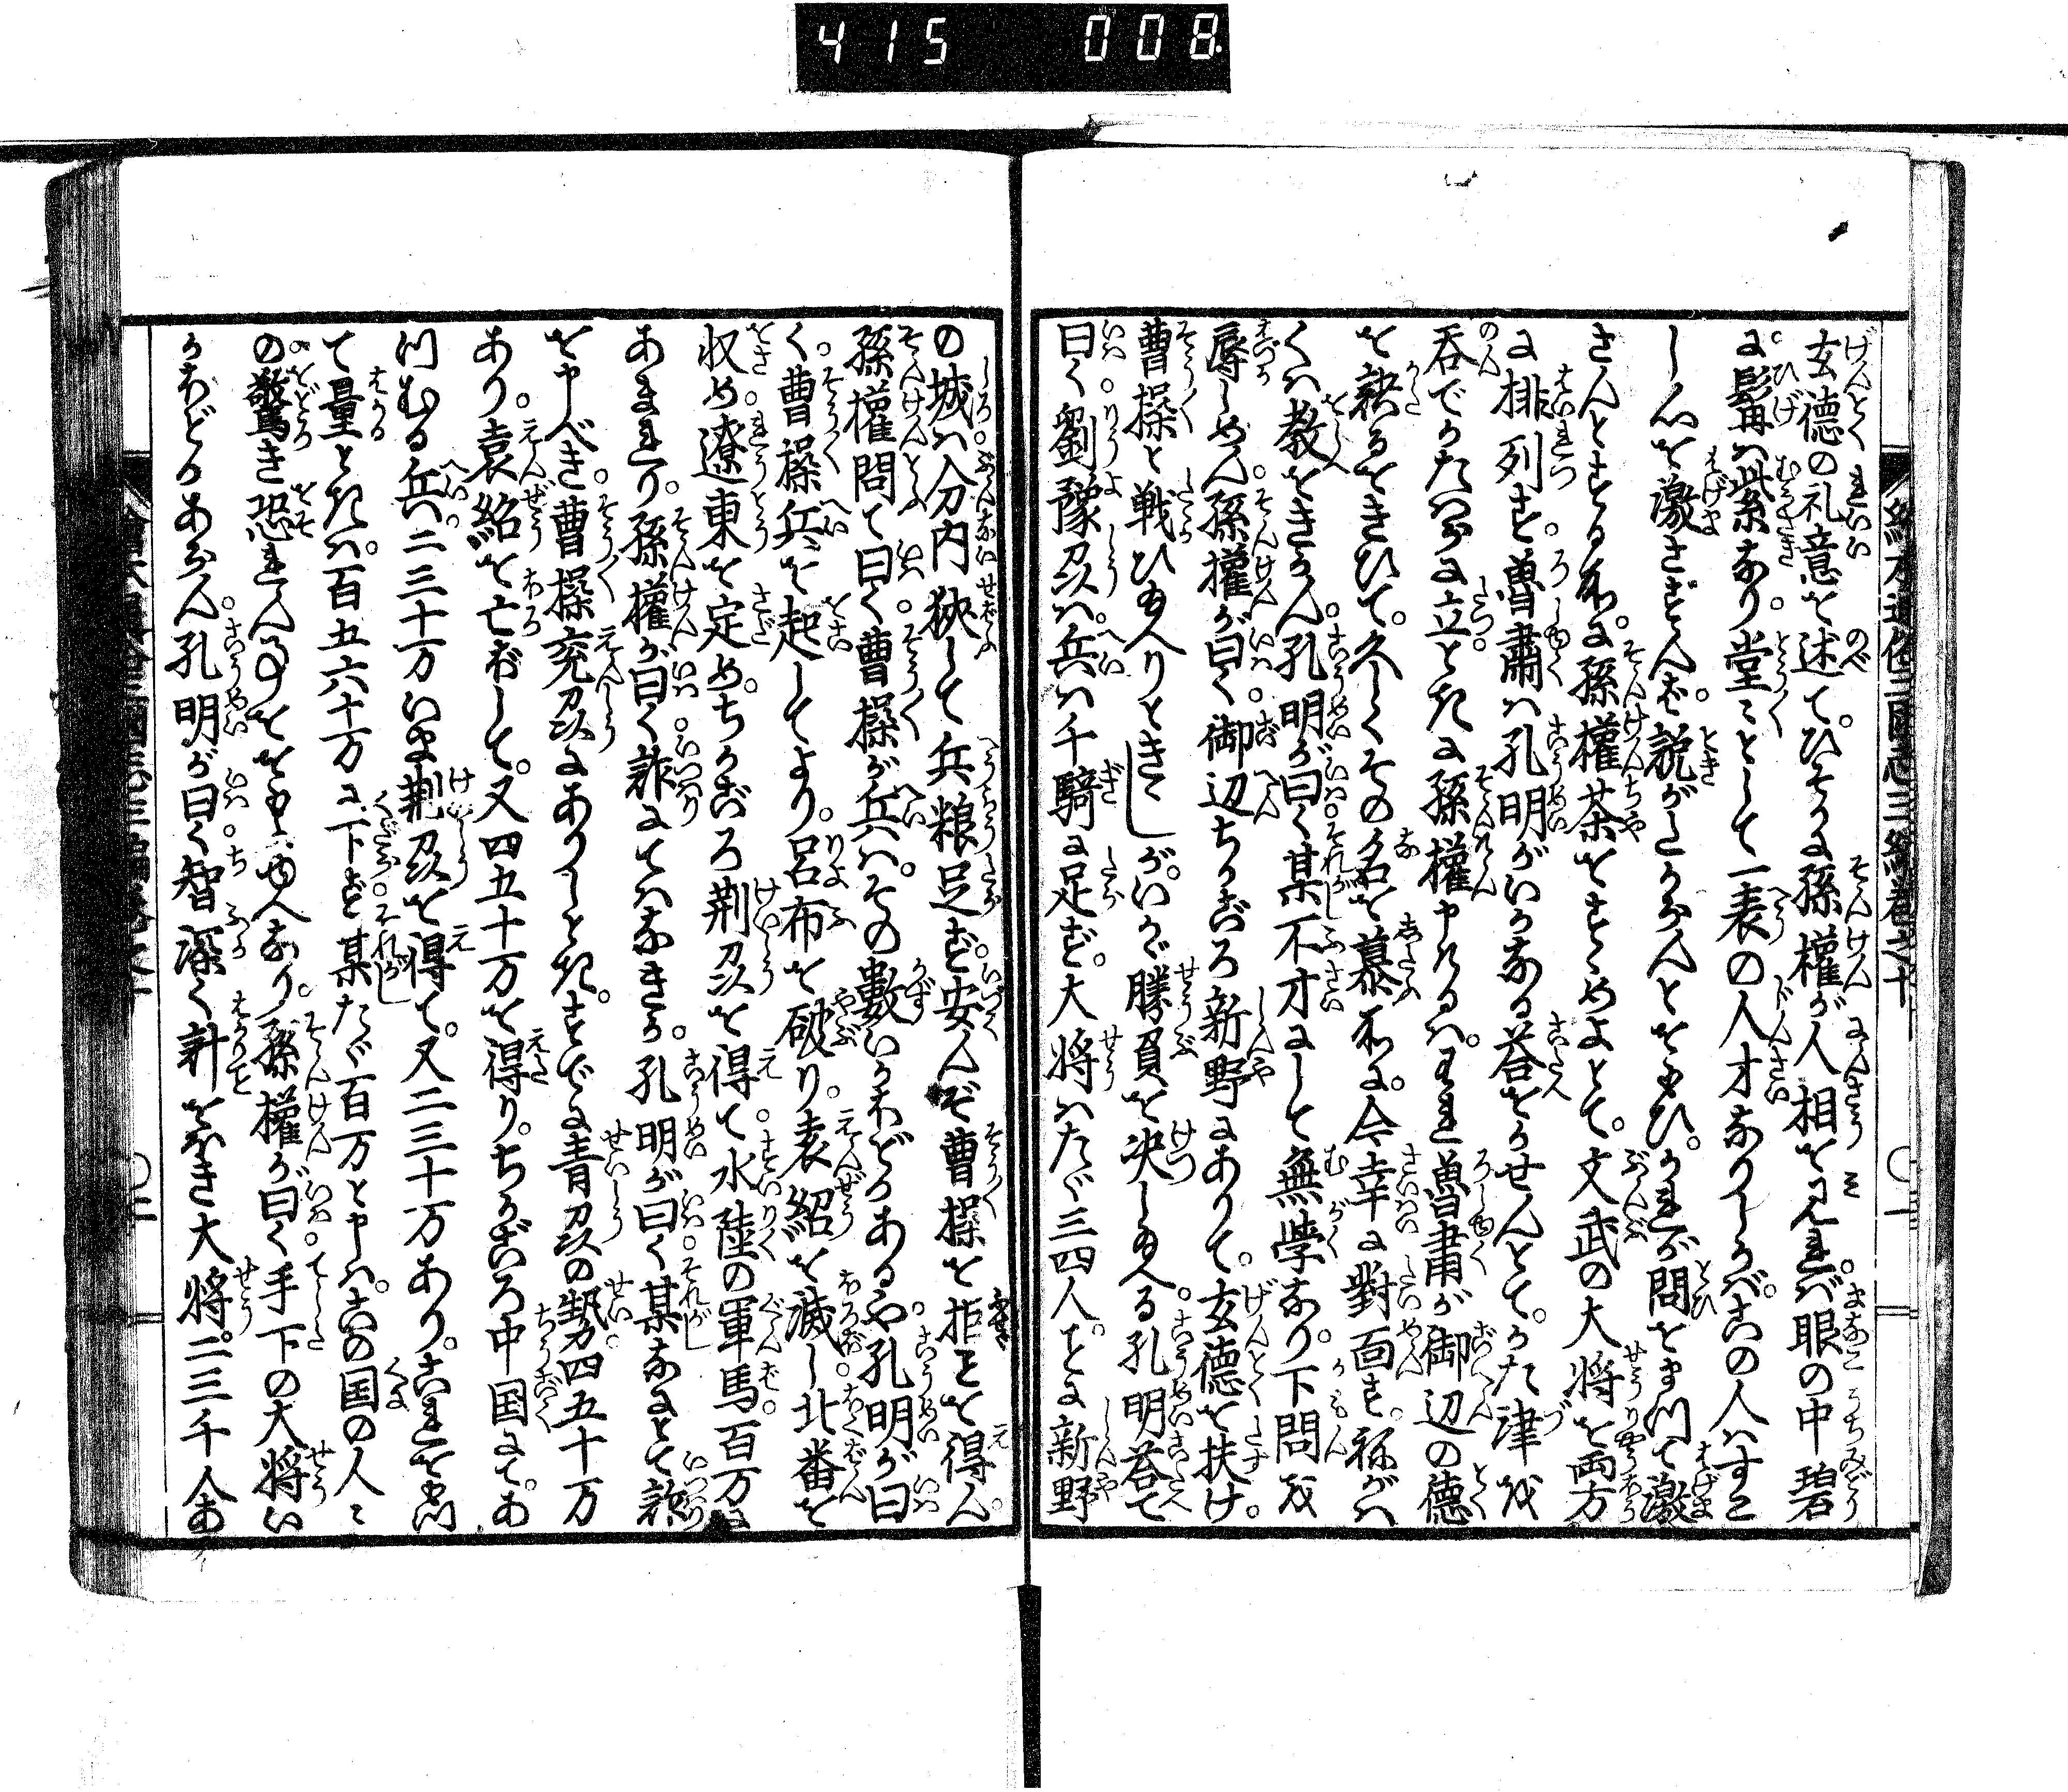 415 008
絵本通俗三国志三編巻之十
玄徳の礼意を述て。ひそかに孫權が人相を見れば。眼の中碧
に。鬚は紫なり。堂々として一表の人才なりしかば。この人はすこ
し心を激さずんば。説がたからんとをもひ。かれが問をまつて激
さんとする所に。孫權茶をすゝめよとて。文武の大将を両方
に排列す。魯肅は孔明がいかなる答をかせんとて。かた津を
呑でかたはらに立どきに孫權申けるは。われ魯肅が御辺の徳
を説るをきひて。久しくその名を慕ふ所に。今幸に對面す。祢がはくは
教をきかん。孔明が曰く某不才にして無学なり。下問を
辱しめん。孫權が曰く。御辺ちかごろ新野にありて。玄徳を扶け。
曹操と戦ひ玉へりときこしが。いかゞ勝負を決し玉へる。孔明答て
曰く。劉豫州は。兵は千騎に足ず。大将はたゞ三四人。ことに新野
の城は。分内狭して兵粮足ず。安んぞ曹操を拒ことを得ん。
孫權問て曰く曹操が兵は。その數いかほどかあるや。孔明が曰
く。曹操兵を起してより。呂布を破り。袁紹を滅し。北番を
収め。遼東を定め。ちかごろ荆州を得て。水陸の軍馬百万に
あまれり。孫權が曰く。詐にてはなきか。孔明が曰く。某なにとて詐
を申べき。曹操兗州にありしとき。すでに青州の勢。四五十万
あり。袁紹を亡ぼして。又四五十万を得たり。ちかごろ中国にて。あ
つむる兵。二三十万いま荆州を得て。又二三十万あり。これをもつ
て量ときは。百五六十万に下ず。某たゞ百万と申は。この国の人々
の。驚き恐れん事ををもふゆへなり。孫權が曰く。手下の大将い
かほどかあらん。孔明が曰く。智深く計をほき大将。二三千人あ